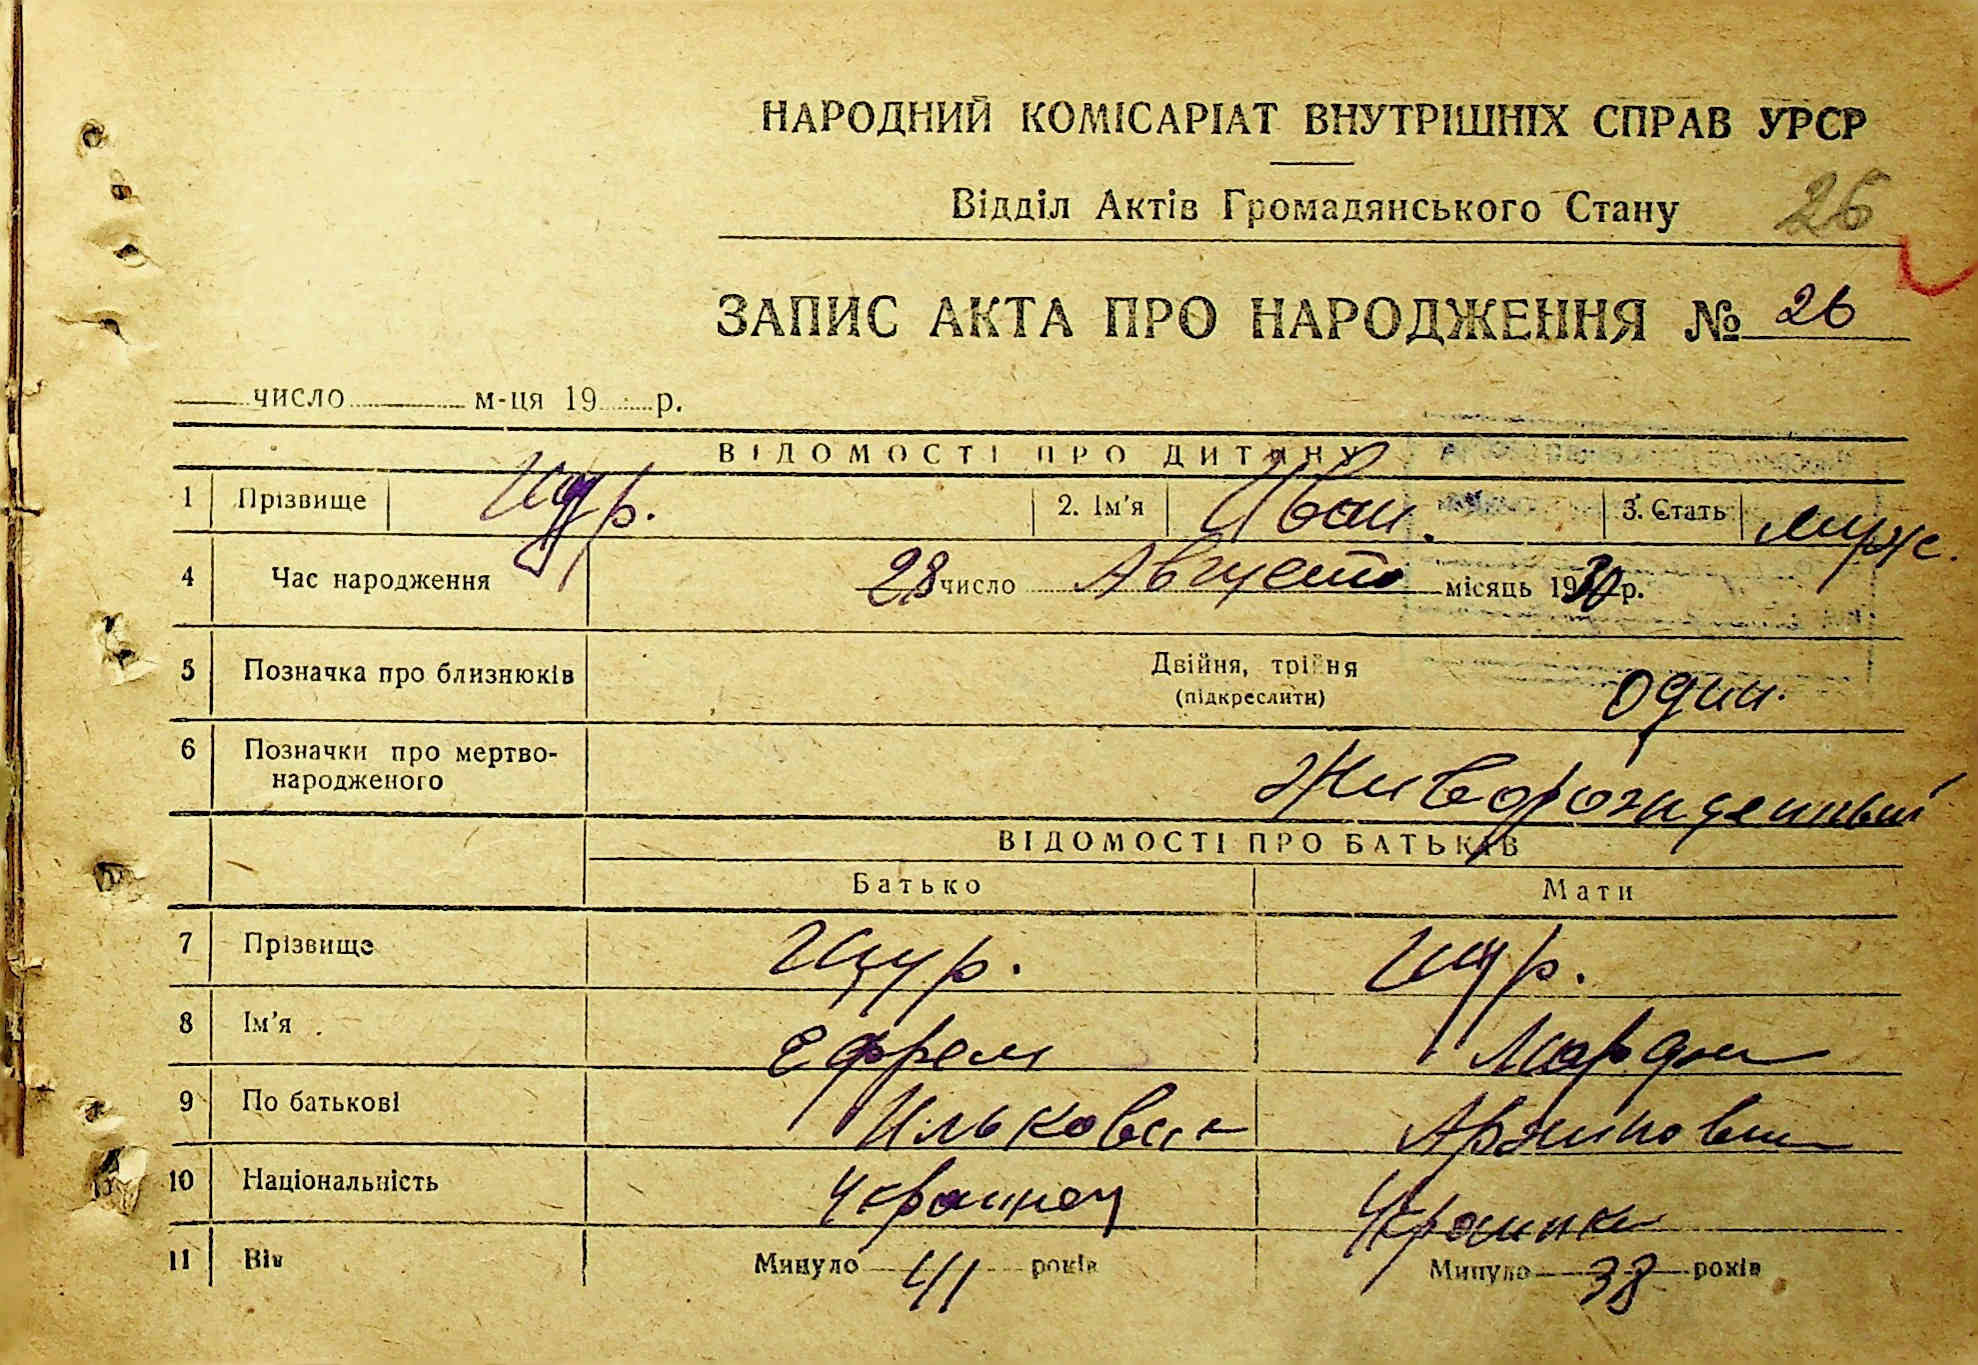 НАРОДНИЙ КОМІСАРІАТ ВНУТРІШНІХ СПРАВ УРСР
Відділ Актів Громадянського Стану 26
ЗАПИС АКТА ПРО НАРОДЖЕННЯ № 26
число м-ця 19 р.
ВІДОМОСТІ ПРО ДИТИНУ
1 Прізвище Щур. 2. Ім'я Иван. 3. Стать муж.
4 Час народження 28 число Августа місяць 1930 р.
5 Позначка про близнюків Двійня, трійня один.
(підкреслити)
6 Позначки про мертво- Живорожденный
народженого
ВІДОМОСТІ ПРО БАТЬКІВ
Батько Мати
7 Прізвище Щур. Щур.
8 Ім'я Ефрем
9 По батькові
10 Національність Украинец Украинка
11 Вік Минуло 41 років Минуло 38 років